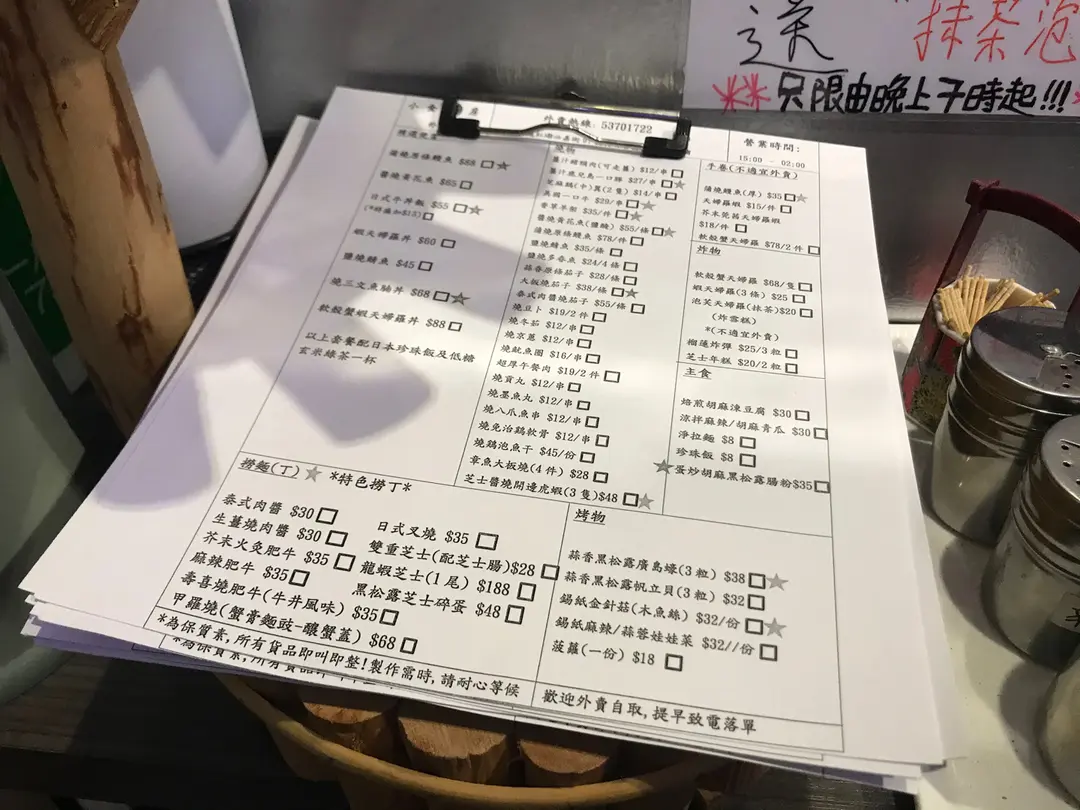 送 "抹茶泡
**只限由晚上干時起!!!*
外賣熱線: 53701722
營業時間:
15:00 - 02:00
蒲燒原條鰻魚 $88 □★
醬燒黃花魚 $65 □
日式牛丼飯 $55 □★
蝦天婦羅丼 $60 □
鹽燒鯖魚 $45 □
燒三文魚腩丼 $68 □★
軟殼蟹蝦天婦羅丼 $88 □
以上套餐配日本珍珠飯及低糖
玄米綠茶一杯
燒物
薑汁豬頸肉(可走薑) $12/串 □
$27/串 □★
(2隻) $14/串 □
美國一口牛 $29/串 □★
香草羊架 $35/件 □★
醬燒黃花魚(鹽燒) $55/條 □★
蒲燒原條鰻魚 $78/件 □
鹽燒鯖魚 $35/條 □
鹽燒多春魚 $24/4條 □
蒜蓉原條茄子 $28/條 □
大板燒茄子 $38/條 □★
泰式肉醬燒茄子 $55/條 □
燒豆卜 $19/2件 □
燒冬菇 $12/串 □
燒京蔥 $12/串 □
燒魷魚圈 $16/串 □
超厚午餐肉 $19/2件 □
燒貢丸 $12/串 □
燒墨魚丸 $12/串 □
燒八爪魚串 $12/串 □
燒免治鷄軟骨 $12/串 □
燒鷄泡魚干 $45/份 □
章魚大板燒(4件) $28 □
芝士醬燒開邊虎蝦(3隻)$48 □★
手卷(不適宜外賣)
蒲燒鰻魚(厚) $35 □★
天婦羅蝦 $15/件 □
芥末沱舀天婦羅蝦
$18/件 □
軟殼蟹天婦羅 $78/2件 □
炸物
軟殼蟹天婦羅 $68/隻 □
蝦天婦羅(3條) $25 □
泡芙天婦羅(抹茶)$20 □
(炸雪糕)
*(不適宜外賣)
榴蓮炸彈 $25/3粒 □
芝士年糕 $20/2粒 □
主食
焙煎胡麻凍豆腐 $30 □
涼拌麻辣/胡麻青瓜 $30 □
淨拉麵 $8 □
珍珠飯 $8 □
★蛋炒胡麻黑松露腸粉$35 □
撈麵(丁) ★ *特色撈丁*
泰式肉醬 $30 □
生薑燒肉醬 $30 □
芥末火灸肥牛 $35 □
麻辣肥牛 $35 □
壽喜燒肥牛(牛丼風味) $35 □
甲羅燒(蟹膏麵豉-釀蟹蓋) $68 □
日式叉燒 $35 □
雙重芝士(配芝士腸)$28 □
龍蝦芝士(1尾) $188 □
黑松露芝士碎蛋 $48 □
*為保質素,所有貨品即叫即整!製作需時,請耐心等候
烤物
蒜香黑松露廣島蠔(3粒) $38 □★
蒜香黑松露帆立貝(3粒) $32 □
錫紙金針菇(木魚絲) $32/份 □★
錫紙麻辣/蒜蓉娃娃菜 $32//份 □
菠蘿(一份) $18 □
歡迎外賣自取,提早致電落單
*為保質素,所有貨品即